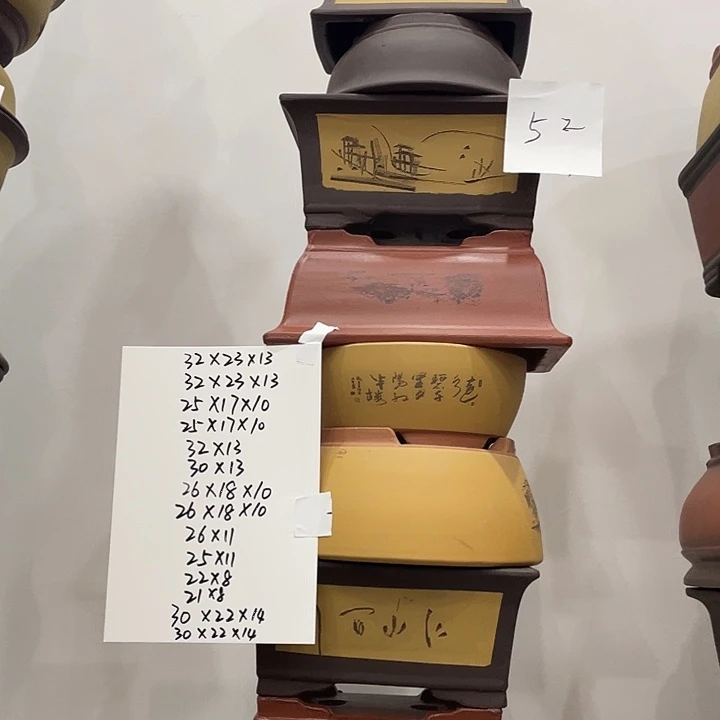 52
32×23×13
32×23×13
25×17×10
25×17×10
32×13
30×13
26×18×10
26×18×10
26×11
25×11
22×8
21×8
30×22×14
30×22×14